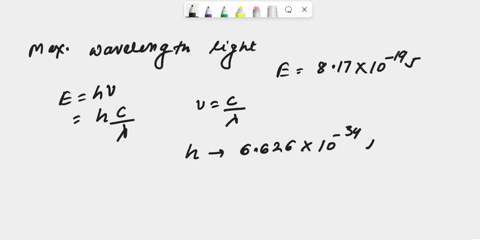 Max. wavelength light
E = 8.17×10⁻¹⁹J
E = hν
= h c/λ
ν = c/λ
h → 6.626 × 10⁻³⁴,